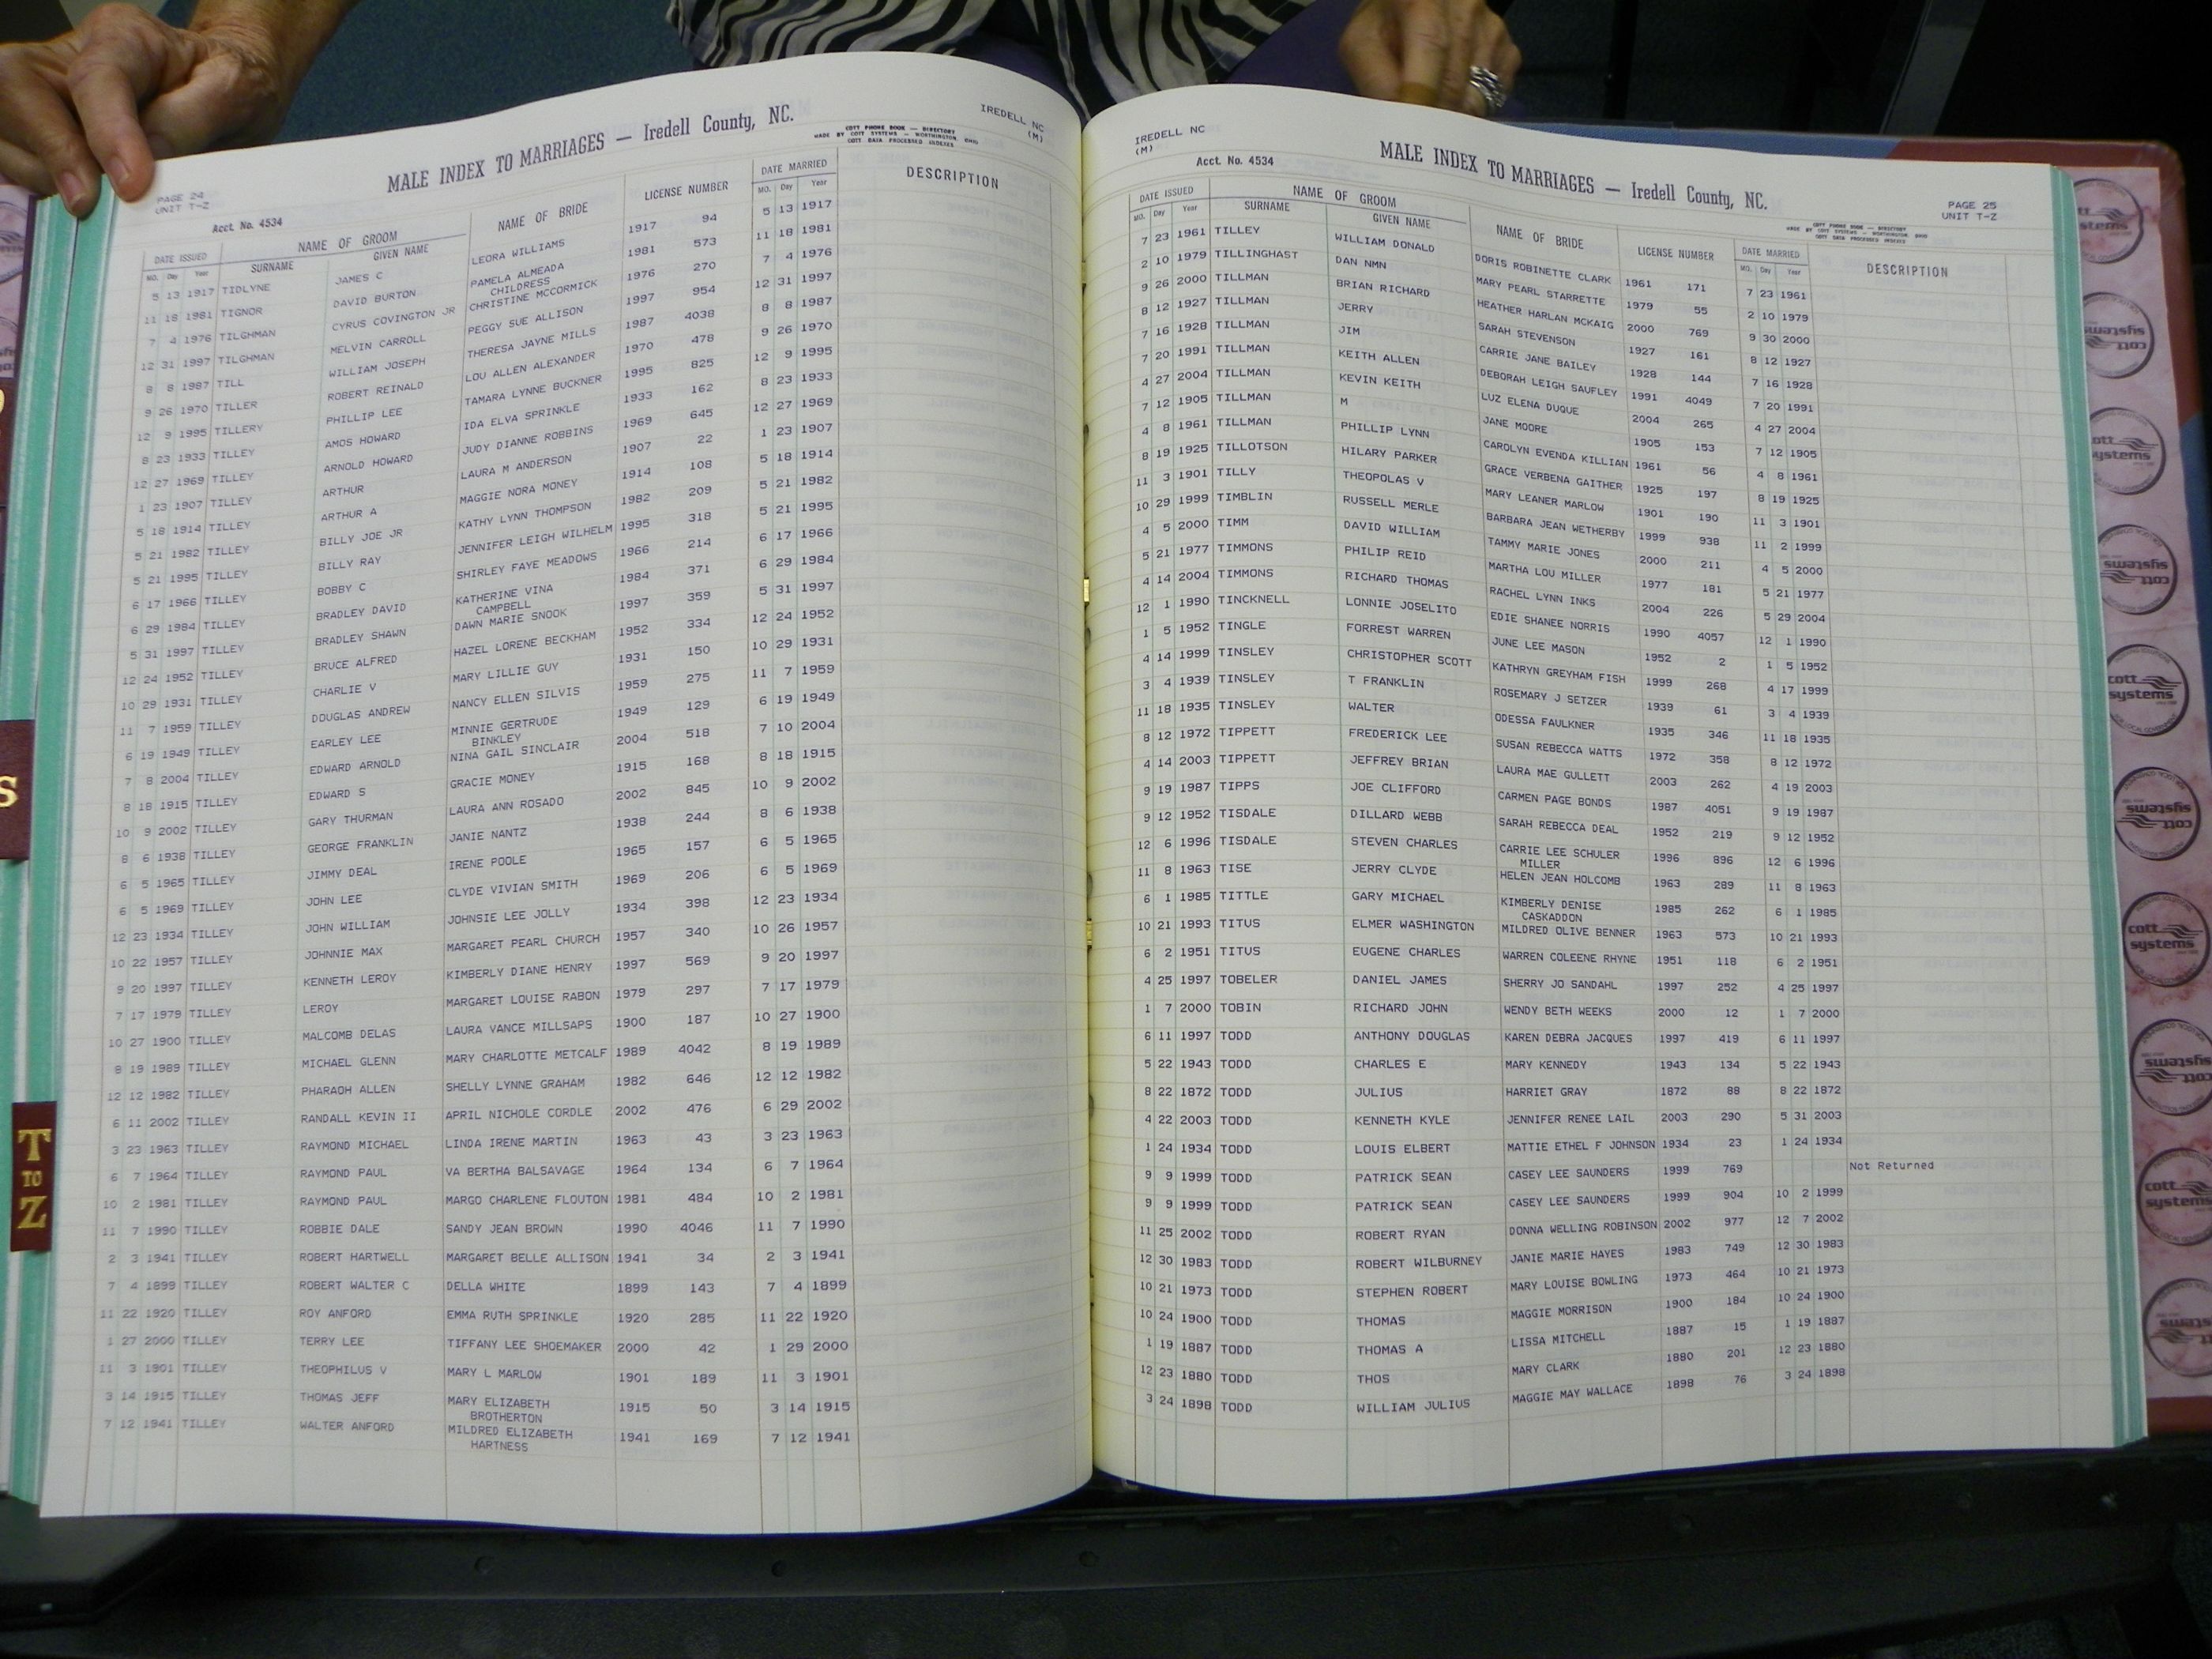 IREDELL NC
(M)
MALE INDEX TO MARRIAGES — Iredell County, NC.
COTT PHONE BOOK — DIRECTORY
MADE BY COTT SYSTEMS — WORTHINGTON, OHIO
COTT DATA PROCESSED INDEXES
PAGE 24
UNIT T-Z
Acct. No. 4534
DATE ISSUED NAME OF GROOM NAME OF BRIDE LICENSE NUMBER DATE MARRIED DESCRIPTION
MO. Day Year SURNAME GIVEN NAME MO. Day Year
5 13 1917 TIDLYNE JAMES C LEORA WILLIAMS 1917 94 5 13 1917
11 18 1981 TIGNOR DAVID BURTON PAMELA ALMEADA 1981 573 11 18 1981
CHILDRESS
7 4 1976 TILGHMAN CYRUS COVINGTON JR CHRISTINE MCCORMICK 1976 270 7 4 1976
12 31 1997 TILGHMAN MELVIN CARROLL PEGGY SUE ALLISON 1997 954 12 31 1997
8 8 1987 TILL WILLIAM JOSEPH THERESA JAYNE MILLS 1987 4038 8 8 1987
9 26 1970 TILLER ROBERT REINALD LOU ALLEN ALEXANDER 1970 478 9 26 1970
12 9 1995 TILLERY PHILLIP LEE TAMARA LYNNE BUCKNER 1995 825 12 9 1995
8 23 1933 TILLEY AMOS HOWARD IDA ELVA SPRINKLE 1933 162 8 23 1933
12 27 1969 TILLEY ARNOLD HOWARD JUDY DIANNE ROBBINS 1969 645 12 27 1969
1 23 1907 TILLEY ARTHUR LAURA M ANDERSON 1907 22 1 23 1907
5 18 1914 TILLEY ARTHUR A MAGGIE NORA MONEY 1914 108 5 18 1914
5 21 1982 TILLEY BILLY JOE JR KATHY LYNN THOMPSON 1982 209 5 21 1982
5 21 1995 TILLEY BILLY RAY JENNIFER LEIGH WILHELM 1995 318 5 21 1995
6 17 1966 TILLEY BOBBY C SHIRLEY FAYE MEADOWS 1966 214 6 17 1966
6 29 1984 TILLEY BRADLEY DAVID KATHERINE VINA 1984 371 6 29 1984
CAMPBELL
5 31 1997 TILLEY BRADLEY SHAWN DAWN MARIE SNOOK 1997 359 5 31 1997
12 24 1952 TILLEY BRUCE ALFRED HAZEL LORENE BECKHAM 1952 334 12 24 1952
10 29 1931 TILLEY CHARLIE V MARY LILLIE GUY 1931 150 10 29 1931
11 7 1959 TILLEY DOUGLAS ANDREW NANCY ELLEN SILVIS 1959 275 11 7 1959
6 19 1949 TILLEY EARLEY LEE MINNIE GERTRUDE 1949 129 6 19 1949
BINKLEY
7 8 2004 TILLEY EDWARD ARNOLD NINA GAIL SINCLAIR 2004 518 7 10 2004
8 18 1915 TILLEY EDWARD S GRACIE MONEY 1915 168 8 18 1915
10 9 2002 TILLEY GARY THURMAN LAURA ANN ROSADO 2002 845 10 9 2002
8 6 1938 TILLEY GEORGE FRANKLIN JANIE NANTZ 1938 244 8 6 1938
6 5 1965 TILLEY JIMMY DEAL IRENE POOLE 1965 157 6 5 1965
6 5 1969 TILLEY JOHN LEE CLYDE VIVIAN SMITH 1969 206 6 5 1969
12 23 1934 TILLEY JOHN WILLIAM JOHNSIE LEE JOLLY 1934 398 12 23 1934
10 22 1957 TILLEY JOHNNIE MAX MARGARET PEARL CHURCH 1957 340 10 26 1957
9 20 1997 TILLEY KENNETH LEROY KIMBERLY DIANE HENRY 1997 569 9 20 1997
7 17 1979 TILLEY LEROY MARGARET LOUISE RABON 1979 297 7 17 1979
10 27 1900 TILLEY MALCOMB DELAS LAURA VANCE MILLSAPS 1900 187 10 27 1900
8 19 1989 TILLEY MICHAEL GLENN MARY CHARLOTTE METCALF 1989 4042 8 19 1989
12 12 1982 TILLEY PHARAOH ALLEN SHELLY LYNNE GRAHAM 1982 646 12 12 1982
6 11 2002 TILLEY RANDALL KEVIN II APRIL NICHOLE CORDLE 2002 476 6 29 2002
3 23 1963 TILLEY RAYMOND MICHAEL LINDA IRENE MARTIN 1963 43 3 23 1963
6 7 1964 TILLEY RAYMOND PAUL VA BERTHA BALSAVAGE 1964 134 6 7 1964
10 2 1981 TILLEY RAYMOND PAUL MARGO CHARLENE FLOUTON 1981 484 10 2 1981
11 7 1990 TILLEY ROBBIE DALE SANDY JEAN BROWN 1990 4046 11 7 1990
2 3 1941 TILLEY ROBERT HARTWELL MARGARET BELLE ALLISON 1941 34 2 3 1941
7 4 1899 TILLEY ROBERT WALTER C DELLA WHITE 1899 143 7 4 1899
11 22 1920 TILLEY ROY ANFORD EMMA RUTH SPRINKLE 1920 285 11 22 1920
1 27 2000 TILLEY TERRY LEE TIFFANY LEE SHOEMAKER 2000 42 1 29 2000
11 3 1901 TILLEY THEOPHILUS V MARY L MARLOW 1901 189 11 3 1901
3 14 1915 TILLEY THOMAS JEFF MARY ELIZABETH 1915 50 3 14 1915
BROTHERTON
7 12 1941 TILLEY WALTER ANFORD MILDRED ELIZABETH 1941 169 7 12 1941
HARTNESS
S
T
TO
Z
IREDELL NC
(M)
Acct. No. 4534
MALE INDEX TO MARRIAGES — Iredell County, NC.
PAGE 25
UNIT T-Z
COTT PHONE BOOK — DIRECTORY
MADE BY COTT SYSTEMS — WORTHINGTON, OHIO
COTT DATA PROCESSED INDEXES
DATE ISSUED NAME OF GROOM NAME OF BRIDE LICENSE NUMBER DATE MARRIED DESCRIPTION
MO. Day Year SURNAME GIVEN NAME MO. Day Year
7 23 1961 TILLEY WILLIAM DONALD DORIS ROBINETTE CLARK 1961 171 7 23 1961
2 10 1979 TILLINGHAST DAN NMN MARY PEARL STARRETTE 1979 55 2 10 1979
9 26 2000 TILLMAN BRIAN RICHARD HEATHER HARLAN MCKAIG 2000 769 9 30 2000
8 12 1927 TILLMAN JERRY SARAH STEVENSON 1927 161 8 12 1927
7 16 1928 TILLMAN JIM CARRIE JANE BAILEY 1928 144 7 16 1928
7 20 1991 TILLMAN KEITH ALLEN DEBORAH LEIGH SAUFLEY 1991 4049 7 20 1991
4 27 2004 TILLMAN KEVIN KEITH LUZ ELENA DUQUE 2004 265 4 27 2004
7 12 1905 TILLMAN M JANE MOORE 1905 153 7 12 1905
4 8 1961 TILLMAN PHILLIP LYNN CAROLYN EVENDA KILLIAN 1961 56 4 8 1961
8 19 1925 TILLOTSON HILARY PARKER GRACE VERBENA GAITHER 1925 197 8 19 1925
11 3 1901 TILLY THEOPOLAS V MARY LEANER MARLOW 1901 190 11 3 1901
10 29 1999 TIMBLIN RUSSELL MERLE BARBARA JEAN WETHERBY 1999 938 11 2 1999
4 5 2000 TIMM DAVID WILLIAM TAMMY MARIE JONES 2000 211 4 5 2000
5 21 1977 TIMMONS PHILIP REID MARTHA LOU MILLER 1977 181 5 21 1977
4 14 2004 TIMMONS RICHARD THOMAS RACHEL LYNN INKS 2004 226 5 29 2004
12 1 1990 TINCKNELL LONNIE JOSELITO EDIE SHANEE NORRIS 1990 4057 12 1 1990
1 5 1952 TINGLE FORREST WARREN JUNE LEE MASON 1952 2 1 5 1952
4 14 1999 TINSLEY CHRISTOPHER SCOTT KATHRYN GREYHAM FISH 1999 268 4 17 1999
3 4 1939 TINSLEY T FRANKLIN ROSEMARY J SETZER 1939 61 3 4 1939
11 18 1935 TINSLEY WALTER ODESSA FAULKNER 1935 346 11 18 1935
8 12 1972 TIPPETT FREDERICK LEE SUSAN REBECCA WATTS 1972 358 8 12 1972
4 14 2003 TIPPETT JEFFREY BRIAN LAURA MAE GULLETT 2003 262 4 19 2003
9 19 1987 TIPPS JOE CLIFFORD CARMEN PAGE BONDS 1987 4051 9 19 1987
9 12 1952 TISDALE DILLARD WEBB SARAH REBECCA DEAL 1952 219 9 12 1952
12 6 1996 TISDALE STEVEN CHARLES CARRIE LEE SCHULER 1996 896 12 6 1996
MILLER
11 8 1963 TISE JERRY CLYDE HELEN JEAN HOLCOMB 1963 289 11 8 1963
6 1 1985 TITTLE GARY MICHAEL KIMBERLY DENISE 1985 262 6 1 1985
CASKADDON
10 21 1993 TITUS ELMER WASHINGTON MILDRED OLIVE BENNER 1963 573 10 21 1993
6 2 1951 TITUS EUGENE CHARLES WARREN COLEENE RHYNE 1951 118 6 2 1951
4 25 1997 TOBELER DANIEL JAMES SHERRY JO SANDAHL 1997 252 4 25 1997
1 7 2000 TOBIN RICHARD JOHN WENDY BETH WEEKS 2000 12 1 7 2000
6 11 1997 TODD ANTHONY DOUGLAS KAREN DEBRA JACQUES 1997 419 6 11 1997
5 22 1943 TODD CHARLES E MARY KENNEDY 1943 134 5 22 1943
8 22 1872 TODD JULIUS HARRIET GRAY 1872 88 8 22 1872
4 22 2003 TODD KENNETH KYLE JENNIFER RENEE LAIL 2003 290 5 31 2003
1 24 1934 TODD LOUIS ELBERT MATTIE ETHEL F JOHNSON 1934 23 1 24 1934
9 9 1999 TODD PATRICK SEAN CASEY LEE SAUNDERS 1999 769 Not Returned
9 9 1999 TODD PATRICK SEAN CASEY LEE SAUNDERS 1999 904 10 2 1999
11 25 2002 TODD ROBERT RYAN DONNA WELLING ROBINSON 2002 977 12 7 2002
12 30 1983 TODD ROBERT WILBURNEY JANIE MARIE HAYES 1983 749 12 30 1983
10 21 1973 TODD STEPHEN ROBERT MARY LOUISE BOWLING 1973 464 10 21 1973
10 24 1900 TODD THOMAS MAGGIE MORRISON 1900 184 10 24 1900
1 19 1887 TODD THOMAS A LISSA MITCHELL 1887 15 1 19 1887
12 23 1880 TODD THOS MARY CLARK 1880 201 12 23 1880
3 24 1898 TODD WILLIAM JULIUS MAGGIE MAY WALLACE 1898 76 3 24 1898
cott
systems
cott
systems